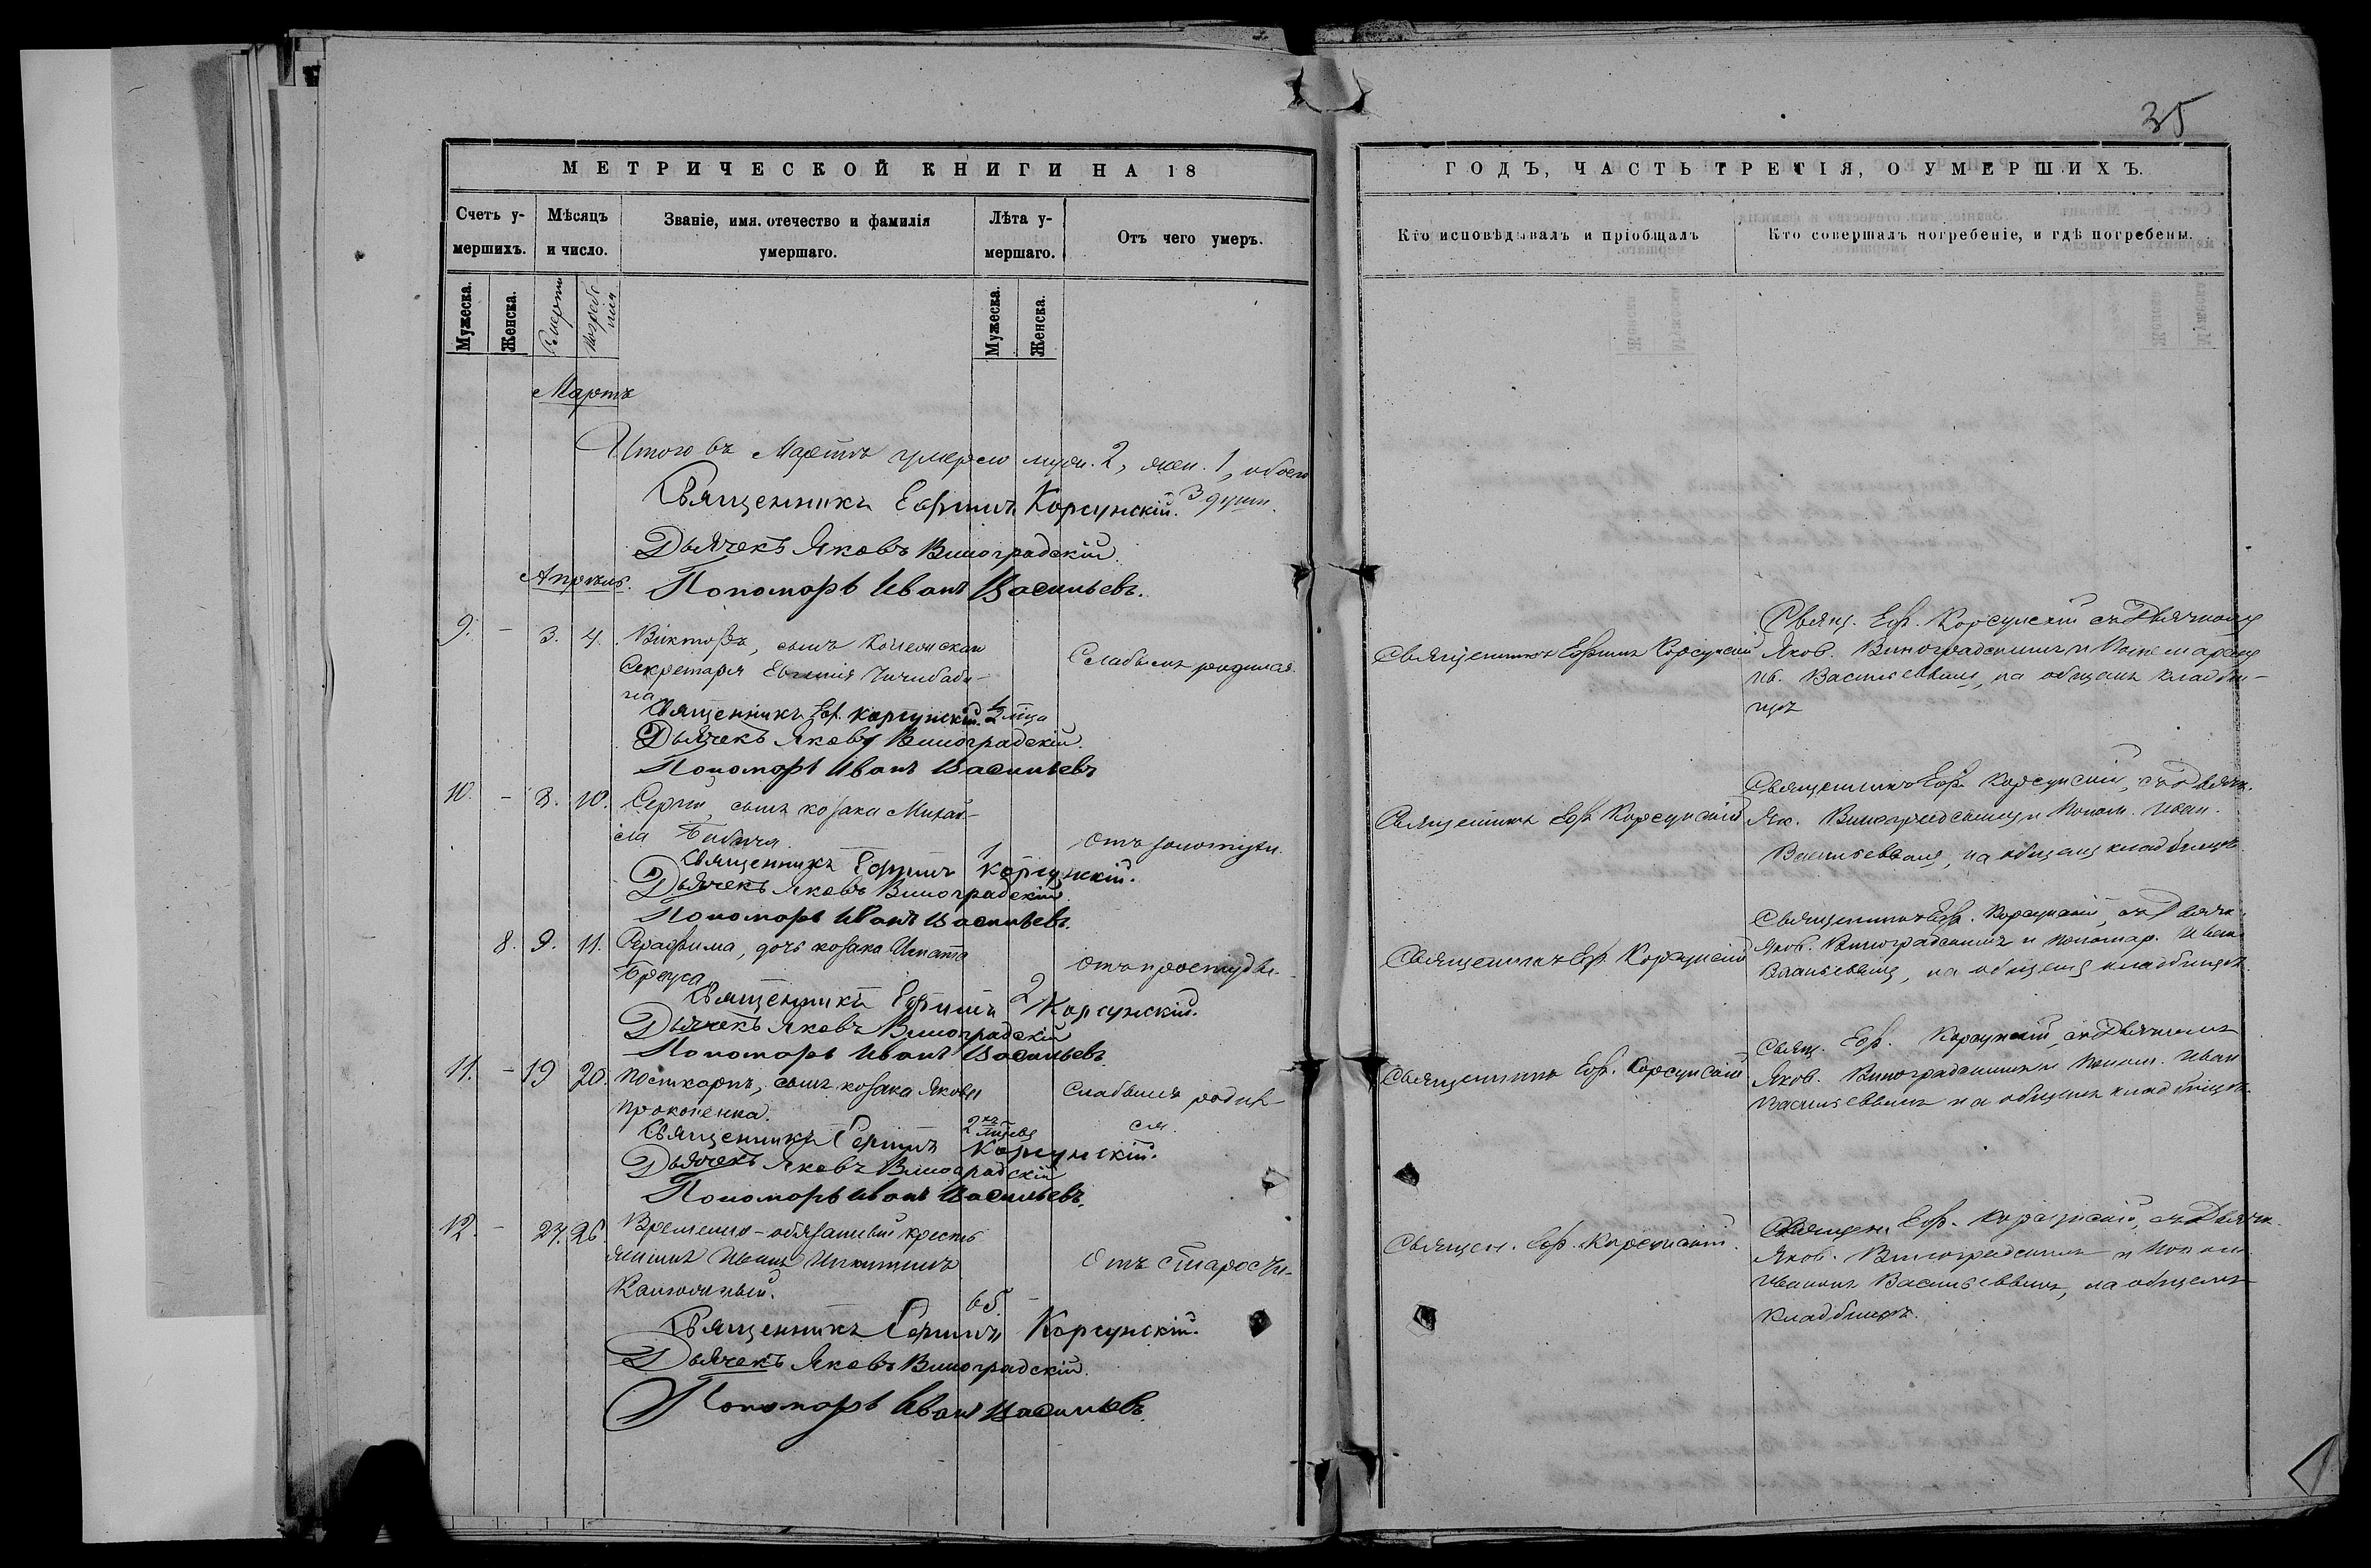 35
МЕТРИЧЕСКОЙ КНИГИ НА 18
ГОДЪ, ЧАСТЬ ТРЕТІЯ, О УМЕРШИХЪ.
Счетъ у-
мершихъ.
Мѣсяцъ
и число.
Званіе, имя. отечество и фамилія
умершаго.
Лѣта у-
мершаго.
Отъ чего умеръ.
Кто исповѣдывалъ и пріобщалъ
Кто совершалъ погребеніе, и гдѣ погребены.
Мужеска.
Женска.
Смерти
Погребе
нія
Мужеска.
Женска.
Мартъ
Итого въ Мартѣ умерло муж. 2, жен. 1, обоего
3 души.
Священникъ Ефимъ Корсунскій.
Дьячекъ Яковъ Виноградскій.
Апрѣль.
Пономарь Иванъ Васильевъ.
9. - 3. 4. Викторъ, сынъ Коллежскаго
Секретаря Евгенія Чичибаби-
на
1/2 мца
Слабымъ родился.
Священникъ Еф. Корсунскій.
Дьячекъ Яковъ Виноградскій.
Пономарь Иванъ Васильевъ
Священникъ Ефимъ Корсунскій
Свящ. Еф. Корсунскій съ Дьячкомъ
Яков. Виноградскимъ и Пономаремъ
Ив. Васильевымъ, на общемъ кладби-
щѣ
10. - 8. 10. Сергій, сынъ козака Михаи-
ла Бабича.
1
Отъ золотухи.
Священникъ Ефимъ Корсунскій.
Дьячекъ Яковъ Виноградскій
Пономарь Иванъ Васильевъ.
Священникъ Еф. Корсунскій
Священникъ Еф. Корсунскій, съ Дьячк.
Як. Виноградскимъ и Поном. Иван.
Васильевымъ, на общемъ кладбищѣ
8. 9. 11. Серафима, дочь козака Игната
Бреуса
2
Отъ простуды.
Священникъ Ефимъ Корсунскій.
Дьячекъ Яковъ Виноградскій
Пономарь Иванъ Васильевъ.
Священникъ Еф. Корсунскій
Священникъ Еф. Корсунскій, съ Дьячк.
Яков. Виноградскимъ и пономар. Иван.
Васильевымъ, на общемъ кладбищѣ.
11. - 19 20. Поликарпъ, сынъ козака Якова
Прокопенка.
2хъ
мцевъ
Слабымъ родил-
ся
Священникъ Ефимъ Корсунскій.
Дьячекъ Яковъ Виноградскій
Пономарь Иванъ Васильевъ.
Священникъ Еф. Корсунскій
Свящ. Еф. Корсунскій, съ Дьячкомъ
Яков. Виноградскимъ и Поном. Иван
Васильевымъ на общемъ кладбищѣ.
12. - 24. 26. Временно-обязанный кресть
янинъ Иванъ Никитинъ
65.
Отъ старости
Священникъ Ефимъ Корсунскій.
Дьячекъ Яковъ Виноградскій.
Пономарь Иванъ Васильевъ.
Священ. Еф. Корсунскій.
Священ. Еф. Корсунскій, съ Дьячк.
Яков. Виноградскимъ и Поном
Иваномъ Васильевымъ, на общемъ
кладбищѣ.